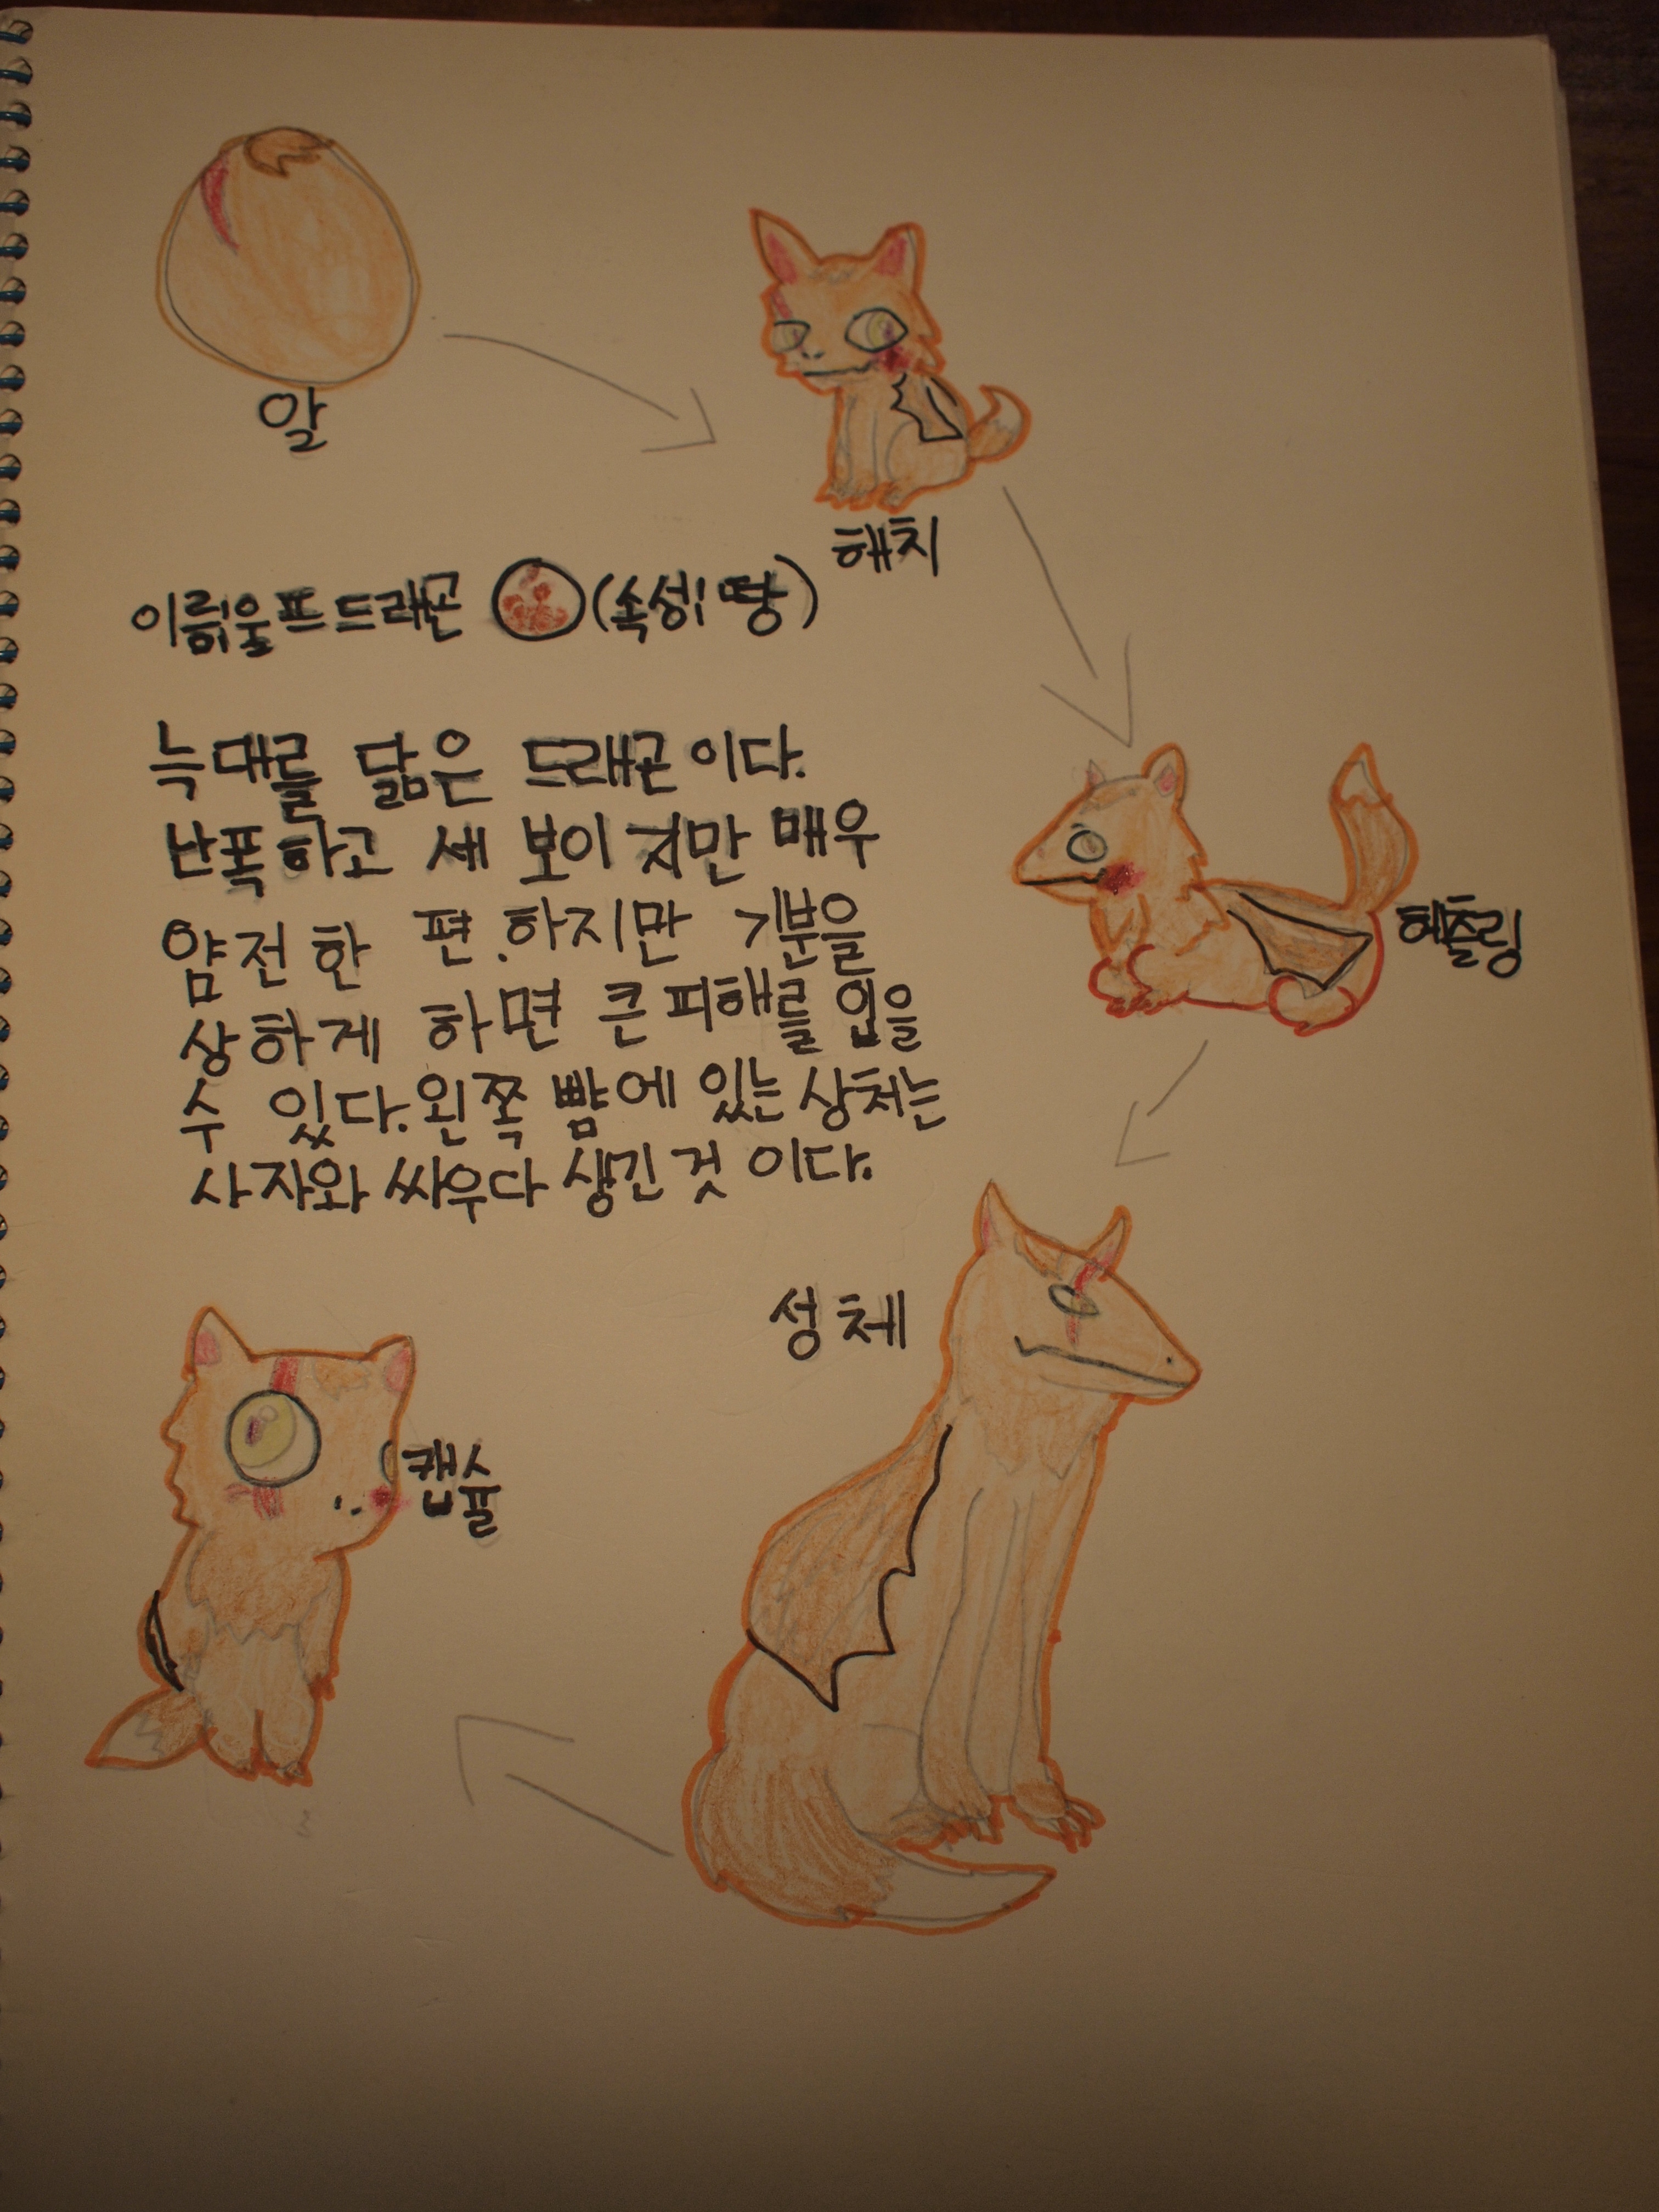 알
해치
이름:울프드래곤 (속성:땅)
늑대를 닮은 드래곤이다.
난폭하고 세 보이지만 매우
얌전한 편.하지만 기분을
상하게 하면 큰 피해를 입을
수 있다.왼쪽 뺨에 있는 상처는
사자와 싸우다 생긴 것 이다.
헤츨링
성체
캡슐